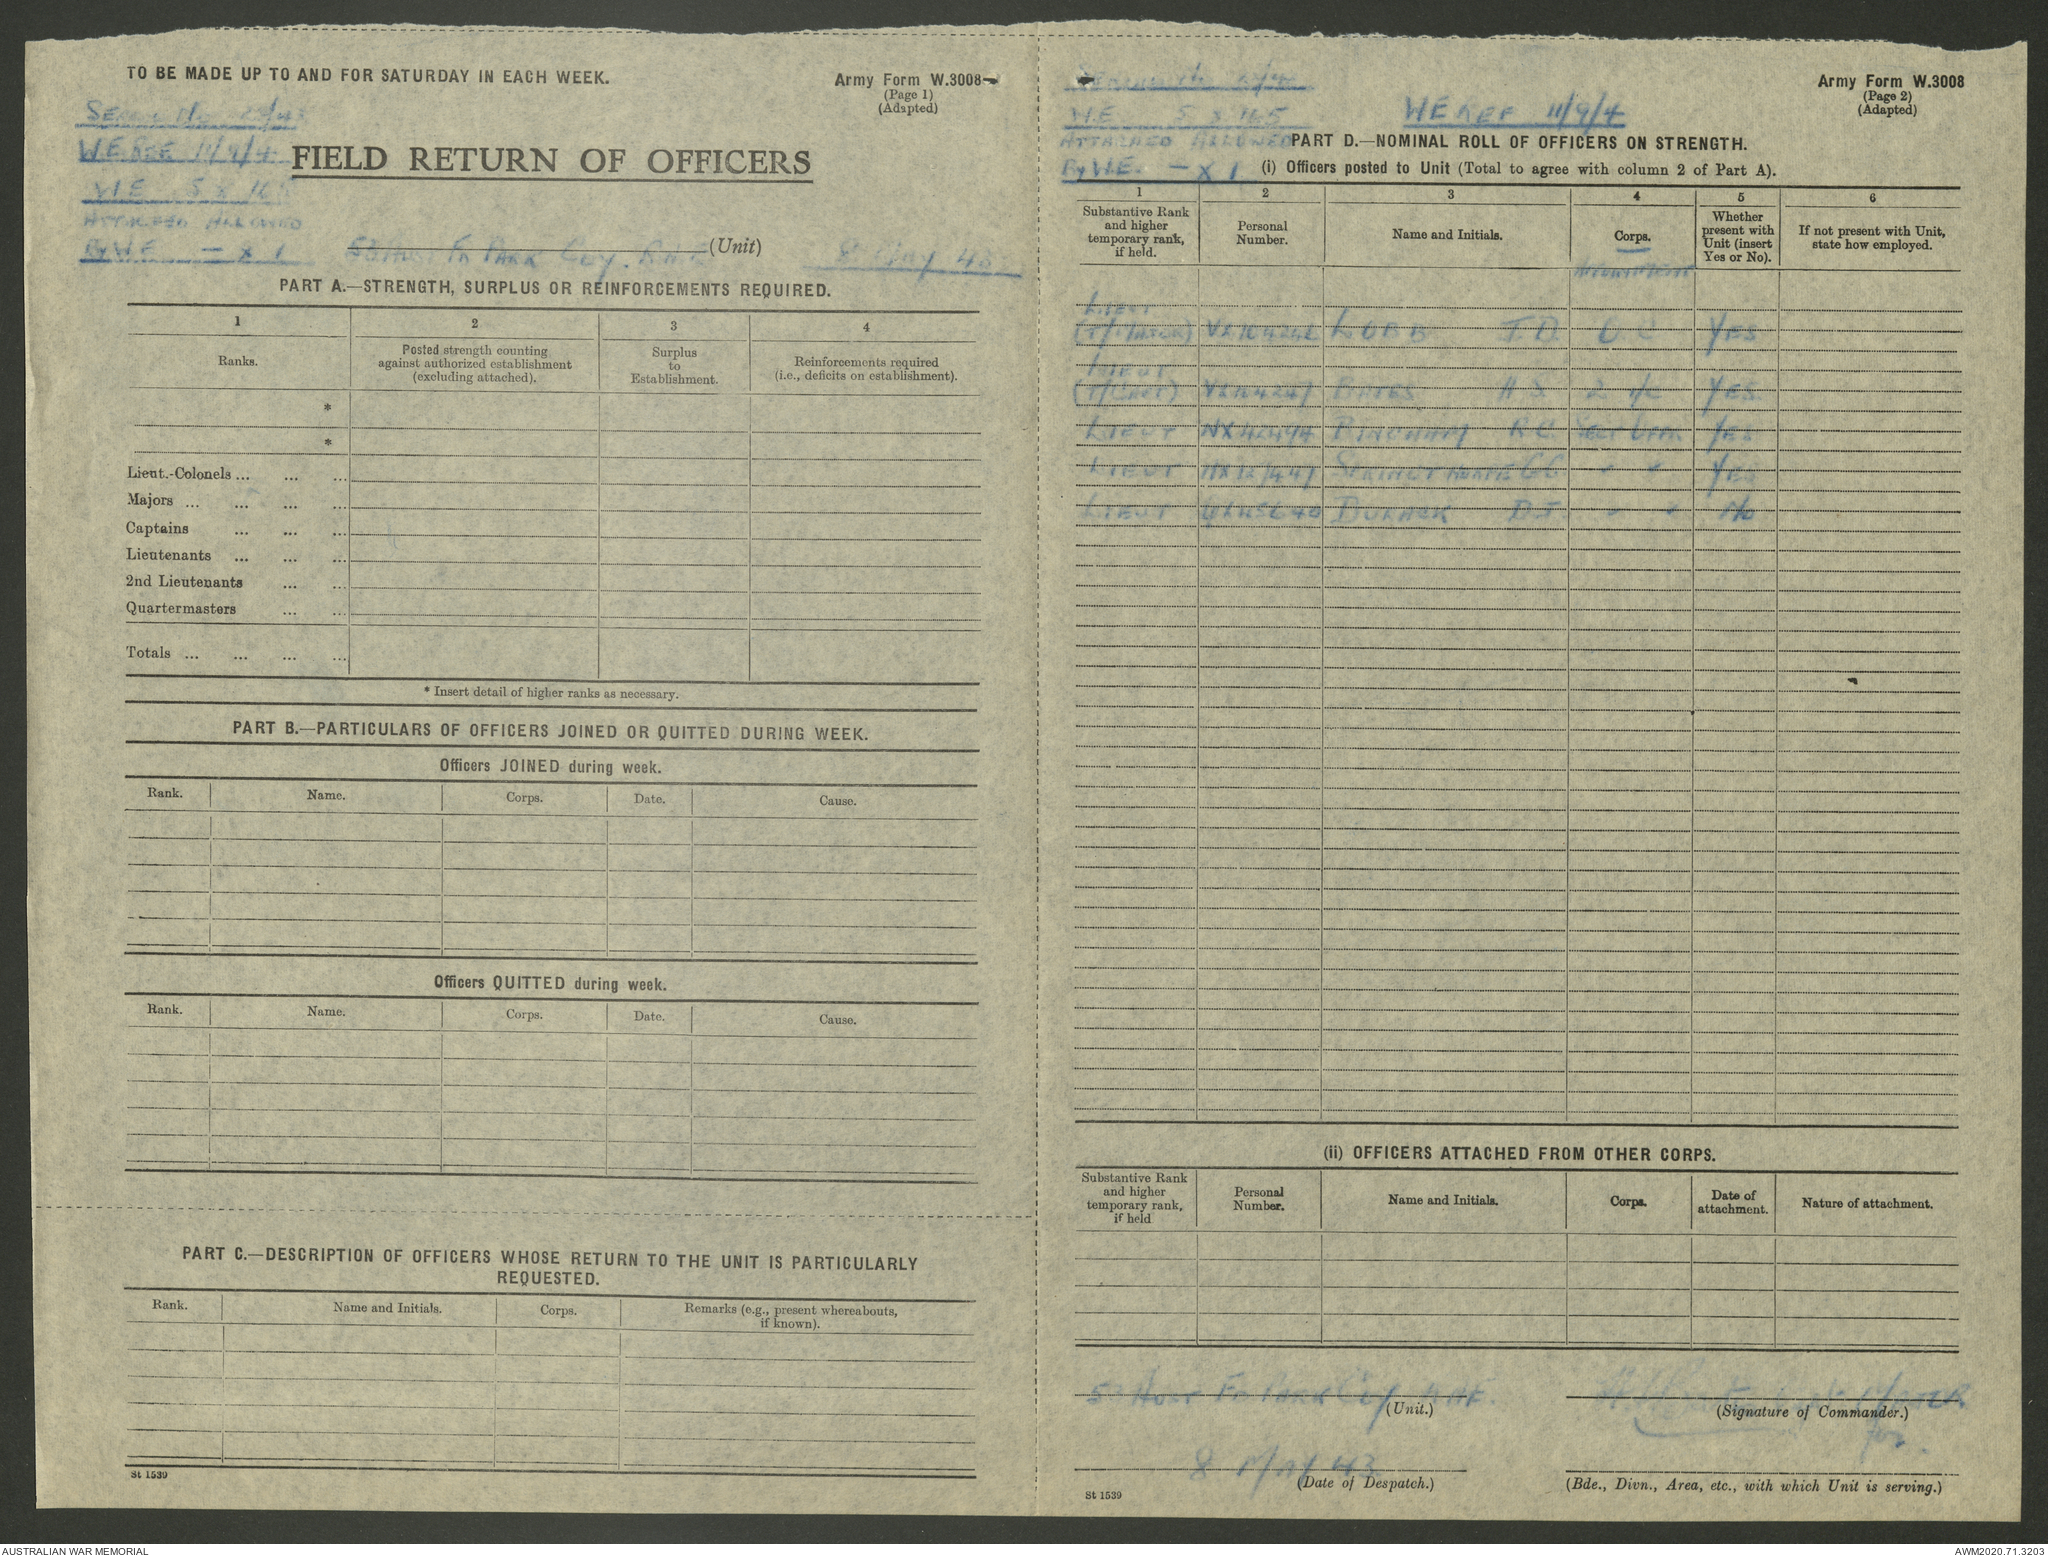 TO BE MADE UP TO AND FOR SATURDAY IN EACH WEEK.
Army Form W.3008
(Page 1)
(Adapted)
W.E. REF 11/9/4
W.E. 5 X 165
ATTACHED ALLOWED
By W.E. — X 1
FIELD RETURN OF OFFICERS
5 Aust Fd Park Coy. R.A.E (Unit)
8 May 43
PART A.—STRENGTH, SURPLUS OR REINFORCEMENTS REQUIRED.
1 2 3 4
Ranks.
Posted strength counting
against authorized establishment
(excluding attached).
Surplus
to
Establishment.
Reinforcements required
(i.e., deficits on establishment).
*
*
Lieut.-Colonels ... ... ...
Majors ... ... ... ...
Captains ... ... ...
Lieutenants ... ... ...
2nd Lieutenants ... ...
Quartermasters ... ...
Totals ... ... ... ...
* Insert detail of higher ranks as necessary.
PART B.—PARTICULARS OF OFFICERS JOINED OR QUITTED DURING WEEK.
Officers JOINED during week.
Rank. Name. Corps. Date. Cause.
Officers QUITTED during week.
Rank. Name. Corps. Date. Cause.
PART C.—DESCRIPTION OF OFFICERS WHOSE RETURN TO THE UNIT IS PARTICULARLY
REQUESTED.
Rank. Name and Initials. Corps. Remarks (e.g., present whereabouts,
if known).
St 1539
Army Form W.3008
(Page 2)
(Adapted)
W.E. 5 X 165
ATTACHED ALLOWED
By W.E. — X 1
W E REF 11/9/4
PART D.—NOMINAL ROLL OF OFFICERS ON STRENGTH.
(i) Officers posted to Unit (Total to agree with column 2 of Part A).
1 2 3 4 5 6
Substantive Rank
and higher
temporary rank,
if held.
Personal
Number.
Name and Initials.
Corps.
Whether
present with
Unit (insert
Yes or No).
If not present with Unit,
state how employed.
Appointment
LIEUT
(T/Major) LOBB J.D. O.C YES
LIEUT
(T/Capt) BATES H S 2 i/c YES
LIEUT BINGHAM R C. YES
LIEUT C C. " " YES
LIEUT D J. " " No
(ii) OFFICERS ATTACHED FROM OTHER CORPS.
Substantive Rank
and higher
temporary rank,
if held
Personal
Number.
Name and Initials.
Corps.
Date of
attachment.
Nature of attachment.
5 Aust Fd Park Coy RAE.
(Unit.)
(Signature of Commander.)
for
8 May 43
(Date of Despatch.)
(Bde., Divn., Area, etc., with which Unit is serving.)
St 1539
AUSTRALIAN WAR MEMORIAL
AWM2020.71.3203